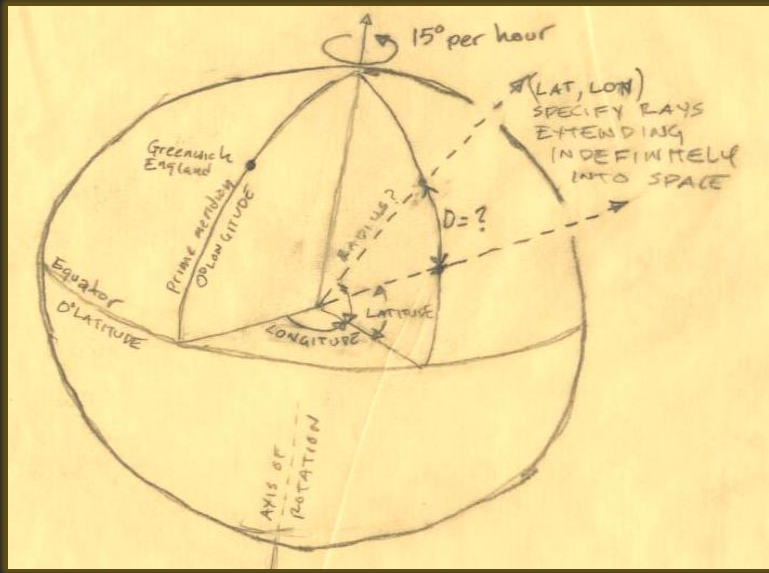 15° per hour
(LAT, LON)
SPECIFY RAYS
EXTENDING
INDEFINITELY
INTO SPACE
Greenwich
England
Prime meridian
0° LONGITUDE
RADIUS?
D=?
Equator
0° LATITUDE
LATITUDE
LONGITUDE
AXIS OF
ROTATION